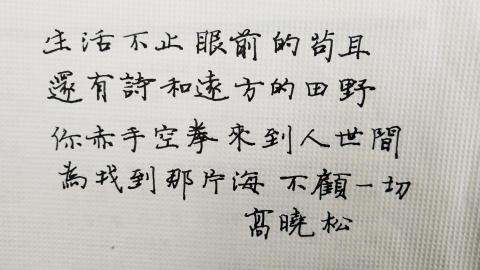 生活不止眼前的苟且
還有詩和遠方的田野
你赤手空拳來到人世間
為找到那片海 不顧一切
高曉松